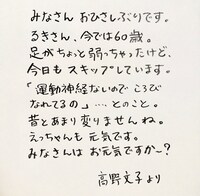 みなさん おひさしぶりです。
るきさん、今では60歳。
足がちょっと弱っちゃったけど、
今日も スキップしています。
「運動神経ないので ころび
なれてるの」‥‥とのこと。
昔とあまり変りませんね。
えっちゃんも 元気です。
みなさんは お元気ですか〜?
高野文子より